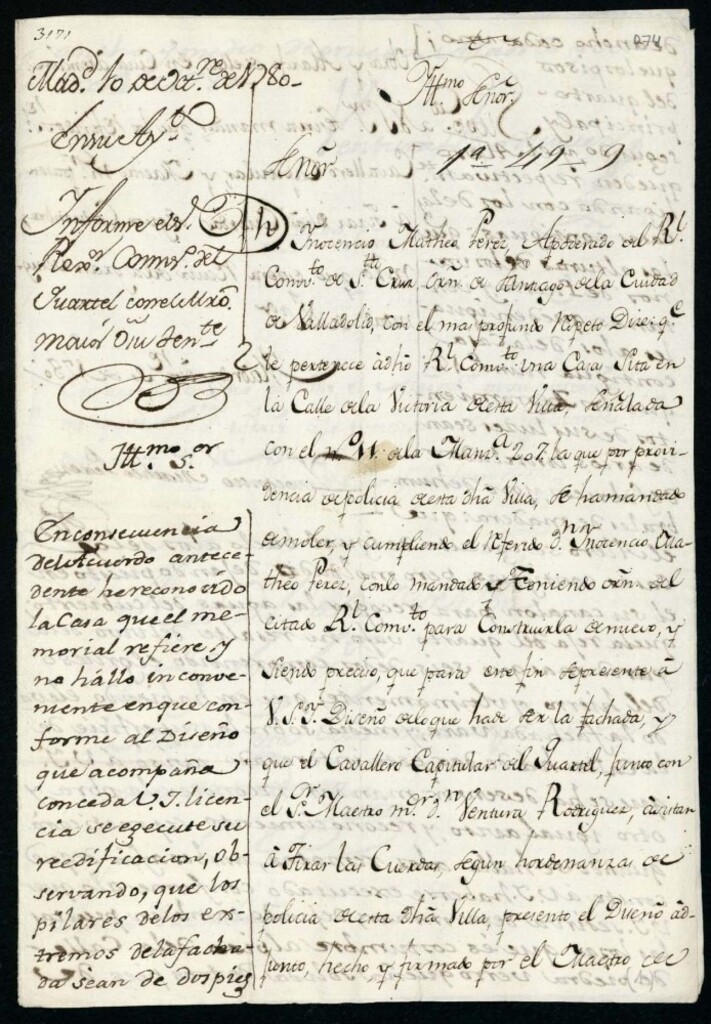 3171
274
Mad.d 10 de Oct.re de 1780
En su Ay.to
Informe el S.r
Rex.or Comis.o del
Quartel con el Mro.
maior
Ill.mo S.or
En consecuencia
del Acuerdo antece-
dente he reconocido
la Casa que el me-
morial refiere, y
no hállo inconve-
niente en que con-
forme al Diseño
que acompaña
conceda V.I. licen-
cia se egecute su
reedificacion, ob-
servando, que los
pilares de los ex-
tremos de la facha-
da sean de dos pies
Ill.mo Señor.
Señor
1a 49 9
Ynocencio Matheo Perez, Apoderado del R.l
Comv.to de S.ta Cruz orn. de Santiago de la Ciudad
de Valladolid, con el mas profundo respeto Dize: q.e
le pertenece à dho R.l Comv.to una Casa Sita en
la Calle de la Victoria de esta Villa, señalada
con el n.o 11 de la Manz.a 207. la que por provi-
dencia de policia de esta dhã Villa, se ha mandado
demoler, y cumpliendo el referido D.n Ynocencio Ma-
theo Perez, con lo mandado y Teniendo orn. del
citado R.l Comv.to para Construirla de nuevo, y
siendo preciso, que para este fin se presente à
V.S.Y. Diseño de lo que hade ser la fachada, y
que el Cavallero Capitular del Quartel, junto con
el S.r Maestro m.or D.n Ventura Rodriguez, asistan
à Tirar las Cuerdas, segun hordenanzas de
policia de esta dhã Villa, presento el Diseño ad-
junto, hecho y firmado por el Maestro de